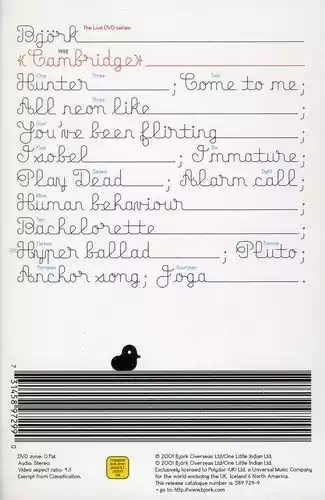 Björk The Live DVD series
1998
«Cambridge»
One Three Two
Hunter; Come to me;
Three
All neon like;
You've been flirting;
Five Six
Isobel; Immature;
Seven Eight
Play Dead; Alarm call;
Nine
Human behaviour;
Ten
Bachelorette;
Eleven Twelve
Hyper ballad; Pluto;
Thirteen Fourteen
Anchor song; Joga.
7 31458 97299 0
DVD zone: 0 Pal.
Audio: Stereo.
Video aspect ratio: 4:3
Exempt from Classification.
℗ 2001 Björk Overseas Ltd/One Little Indian Ltd.
© 2001 Björk Overseas Ltd/One Little Indian Ltd.
Exclusively licensed to Polydor (UK) Ltd, a Universal Music Company
for the world excluding the UK, Iceland & North America.
This release catalogue number is: 589 729-9
go to: http://www.bjork.com